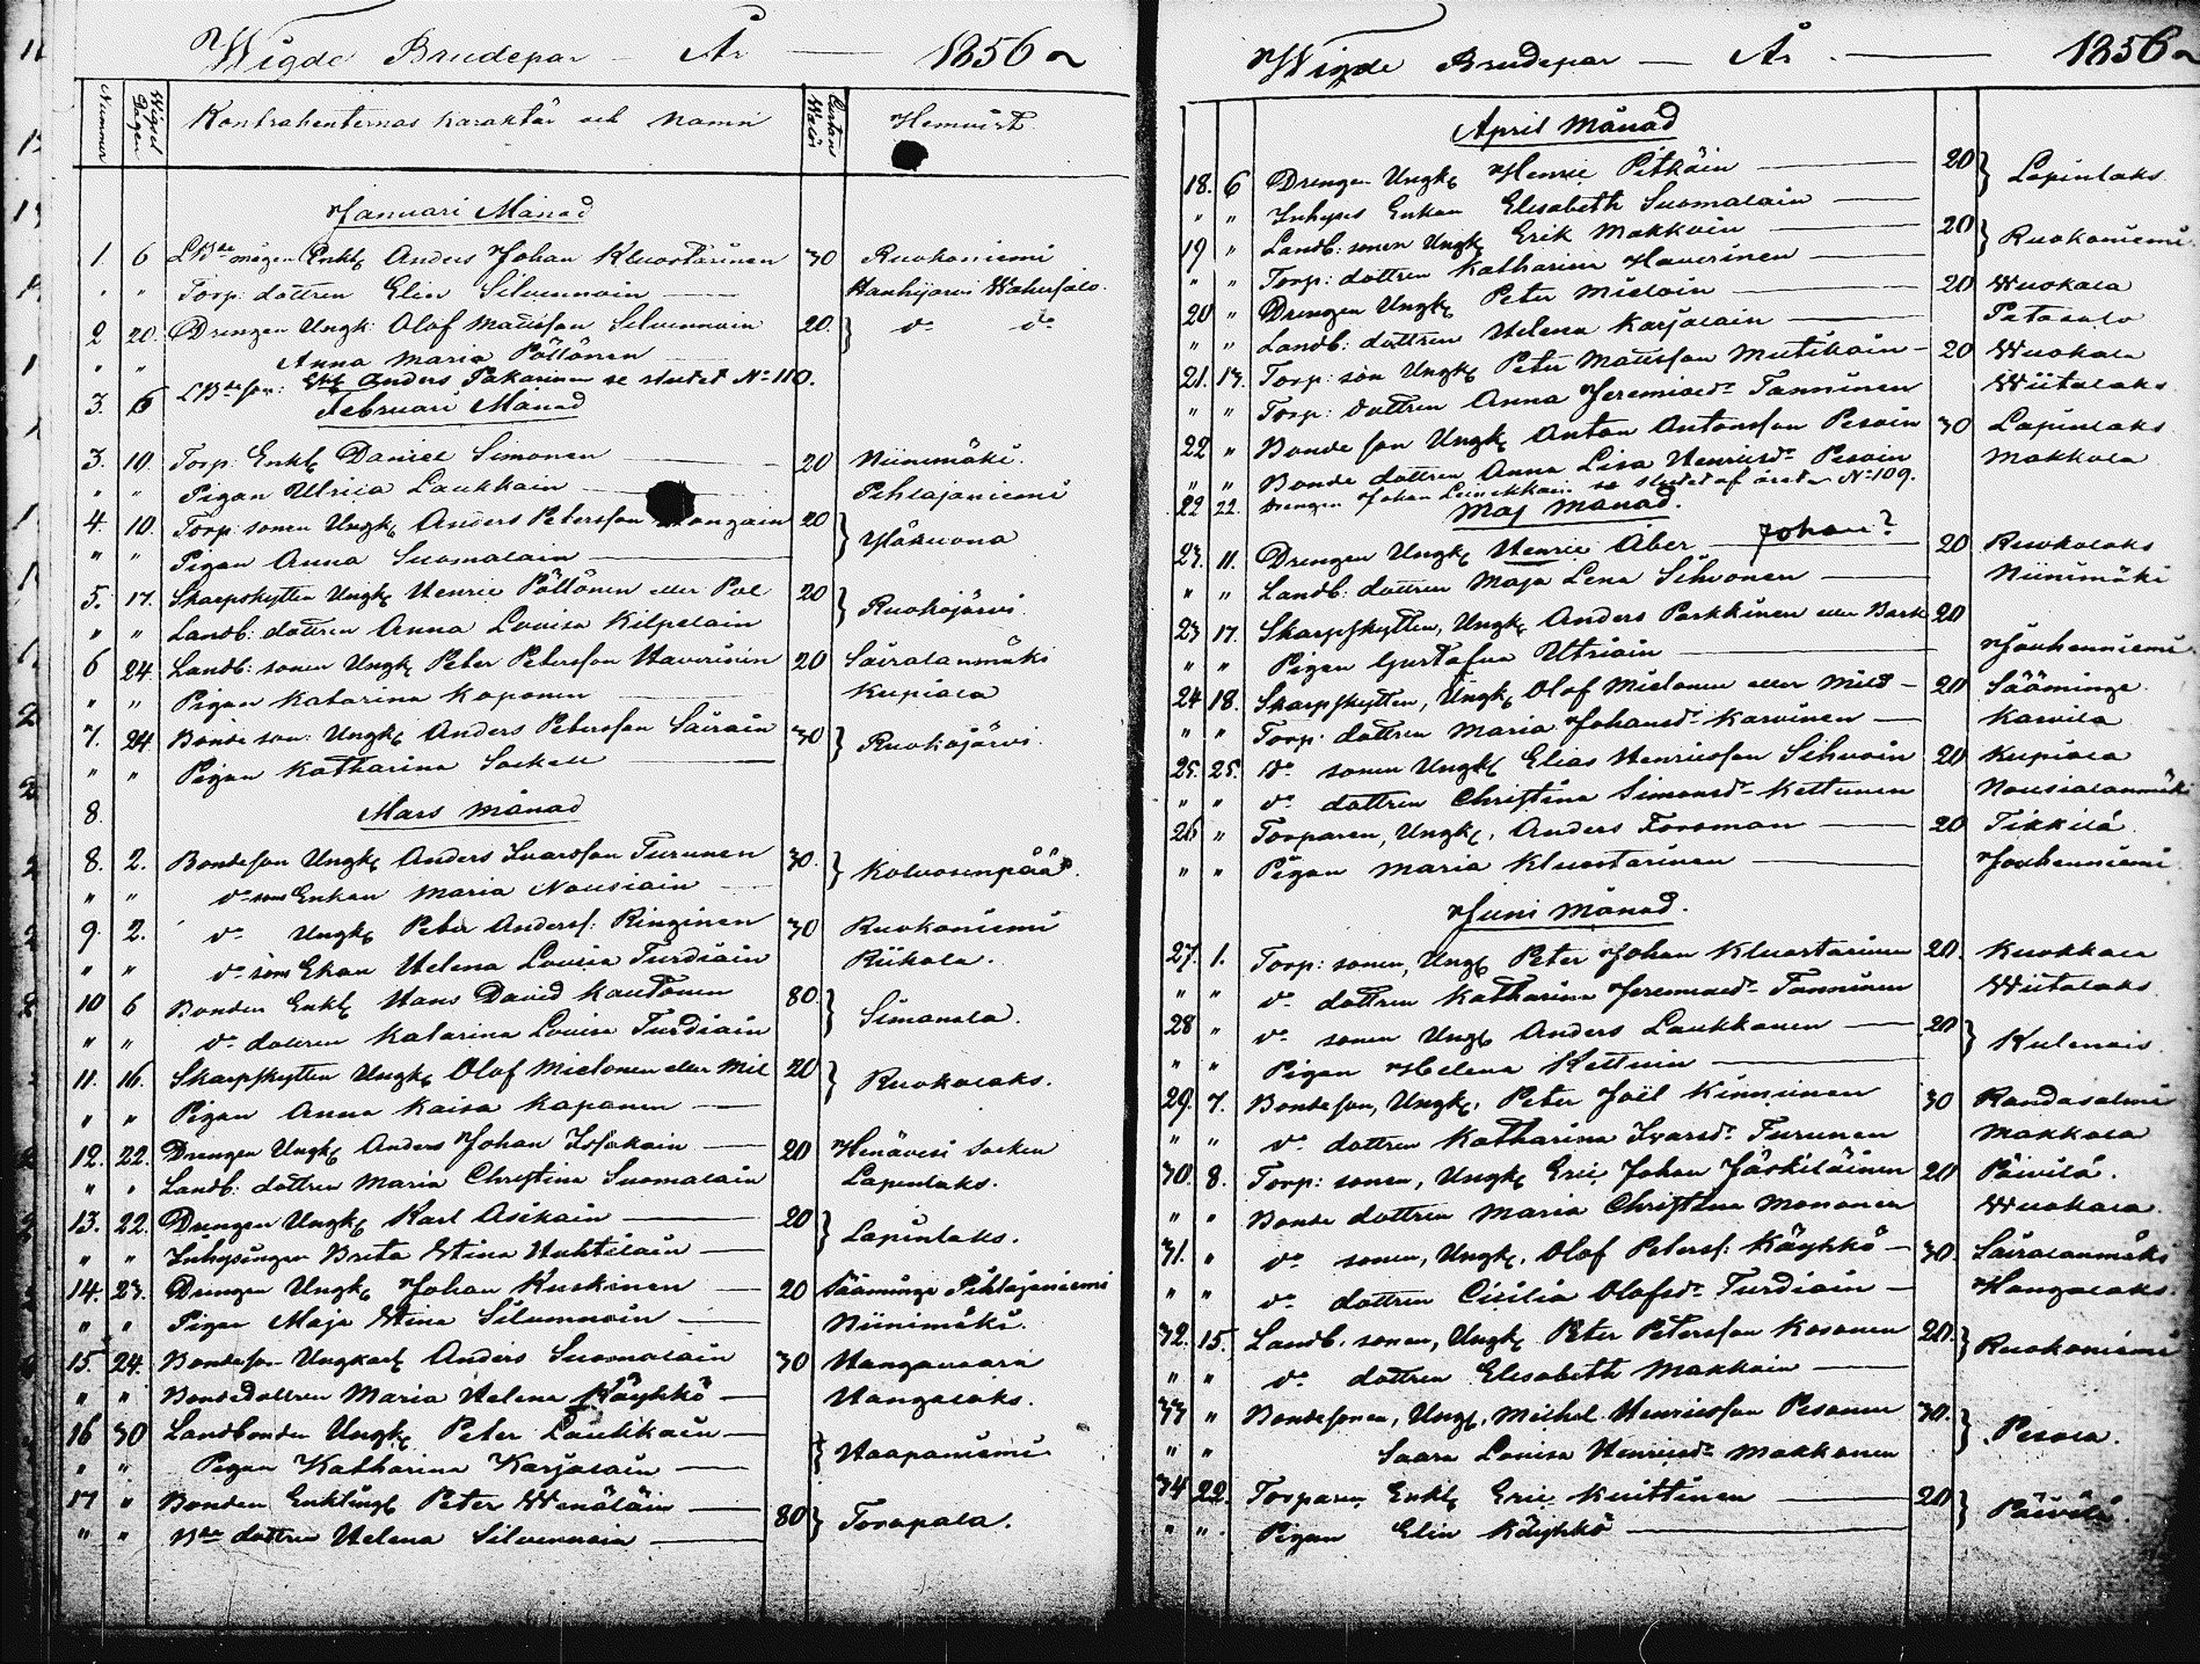 Wigde Brudepar — År — 1856
Nummer Wigsel Dagen Kontrahenternas karaktär och Namn Chartæ Walör Hemvist
Januari Månad
1. 6 LBde mågen Enkl Anders Johan Kluostarinen 30 Ruokoniemi
" " Torp: dottren Elin Silvennoin — Hanhijarvi Wahersalo
2 20. Drengen Ungk: Olof Matsson Silvennoin 20. } do do
" " Anna Maria Pöllönen —
3. 6 LBdeson: Ekl Anders Pakarinen se slutet No 110.
Februari Månad
3. 10. Torp: Enkl Daniel Simonen — 20 Niinimäki.
" " Pigan Ulrica Laukkain — Pihlajaniemi
4. 10. Torp: sonen Ungk Anders Petersson 20 } Yläkuona
" " Pigan Anna Suomalain —
5. 17. Skarpskytten Ungk Henric Pöllönen eller Pol 20 } Ruokojärvi.
" " Landb: dottren Anna Lovisa Kilpelain
6 24 Landb: sonen Ungk Peter Petersson Haverinin 20 Sairalanmäki
" " Pigan Katarina Koponen — Kupiala
7. 24 Bonde son: Ungk Anders Petersson Sairain 30 } Ruokojärvi.
" " Pigan Katharina Sackell —
8. Mars Månad
8. 2. Bondeson Ungk Anders Ivarsson Turunen 30. } Kolvosenpää.
" " do sons Enkan Maria Nousiain —
9. 2. do Ungk Peter Anderss: Ringinen 30 Ruokoniemi
" " do sons Ekan Helena Lovisa Turdiain Riikola.
10 6 Bonden Enkl Hans David Kautonen 80. } Simanala.
" " do dottren Katarina Lovisa Turdiain
11. 16. Skarpskytten Ungk Olof Mielonen eller Mil 20 } Ruokolaks.
" " Pigan Anna Kaisa Kapanen —
12. 22. Drengen Ungk Anders Johan Issakain — 20 Henävesi Socken
" " Landb: dottren Maria Christina Suomalain Lapinlaks.
13. 22. Drengen Ungk Karl Asikain — 20 } Lapinlaks.
" " Inhysingen Brita Stina Huhtilain —
14. 23. Drengen Ungk Johan Kuskinen — 20 Sääminge Pihlajaniemi
" " Pigan Maja Stina Silvennoin — Niinimäki.
15. 24. Bondeson Ungkarl Anders Suomalain 30 Hangavaara
" " Bondedottren Maria Helena Käyhkö — Hangalaks.
16 30 Landbonden Ungk Peter Laukkain — } Haapaniemi
" " Pigan Katharina Karjalain —
17 " Bonden Enklingl Peter Wenäläin — 80 } Torapala.
" " Bde dottren Helena Silvennoin —
Wigde Brudepar — År — 1856
April Månad
18. 6 Drengen Ungk Henric Pitkäin — 20 } Lapinlaks.
" " Inhyses Enkan Elisabeth Suomalain —
19 " Landb: sonen Ungk Erik Makkoin — 20 } Ruokoniemi.
" " Torp: dottren Katharina Haverinen —
20 " Drengen Ungk Peter Mieloin — 20 Wuokala
" " Landb: dottren Helena Karjalain — Patasalo
21. 13. Torp: son Ungk Peter Matsson Mutikain — 20 Wuokala
" " Torp: dottren Anna Jeremiaedr Tanninen Wiitalaks
22 " Bonde son Ungk Anton Antonsson Pesoin 30 Lapinlaks
" " Bonde dottren Anna Lisa Henricsdr Pesoin Makkola
22 22. Drengen Johan Leinikkain se slutet af året No 109.
Maj Månad.
23. 11. Drengen Ungk Henric Åber — Johan? 20 Ruokolaks
" " Landb: dottren Maja Lena Sihvonen — Niinimäki
23 17. Skarpskytten, Ungk Anders Parkkinen eller Bark 20
" " Pigan Gustafva Utriain — Jouhenniemi.
24 18. Skarpskytten, Ungk Olof Mielonen eller Mild — 20 Sääminge.
" " Torp. dottren Maria Johansdr Karvinen — Karvila
25. 25. do sonen Ungk Elias Henricsson Sihvoin 20 Kupiala
" " do dottren Christina Simonsdr Kettunen Nousialanmäki
26 " Torparen, Ungk, Anders Forsman — 20 Tikkilä.
" " Pigan Maria Kluostarinen — Jouhenniemi
Juni Månad.
27. 1. Torp: sonen, Ungk Peter Johan Kluostarinen 20. Kuokkala
" " do dottren Katharina Jeremiaedr Tanninen Wiitalaks
28 " do sonen Ungk Anders Laukkanen — 20 } Kulennois.
" " Pigan Helena Kettuin —
29. 7. Bondeson, Ungk, Peter Joël Kinnunen 30 Randasalmi
" " do dottren Katharina Ivarsdr Turunen Makkola
30. 8. Torp: sonen, Ungk Eric Johan Jäskiläinen 20 Päivilä.
" " Bonde dottren Maria Christina Mononen Wuokala.
31. " do sonen, Ungk, Olof Peterss: Käyhkö — 30. Sairalanmäki
" " do dottren Cicilia Olofsdr Turdiain — Hangalaks.
32. 15. Landb. sonen, Ungk Peter Petersson Kosonen 20. } Ruokoniemi
" " do dottren Elisabeth Makkoin —
33 " Bondesonen, Ungk, Michel Henricsson Pesonen 30. } Pesola.
" " Saara Lovisa Henricsdr Makkonen
34 22. Torparen Enkl Eric Kuittinen — 20 } Päivilä.
" " Pigan Elin Käyhkö —